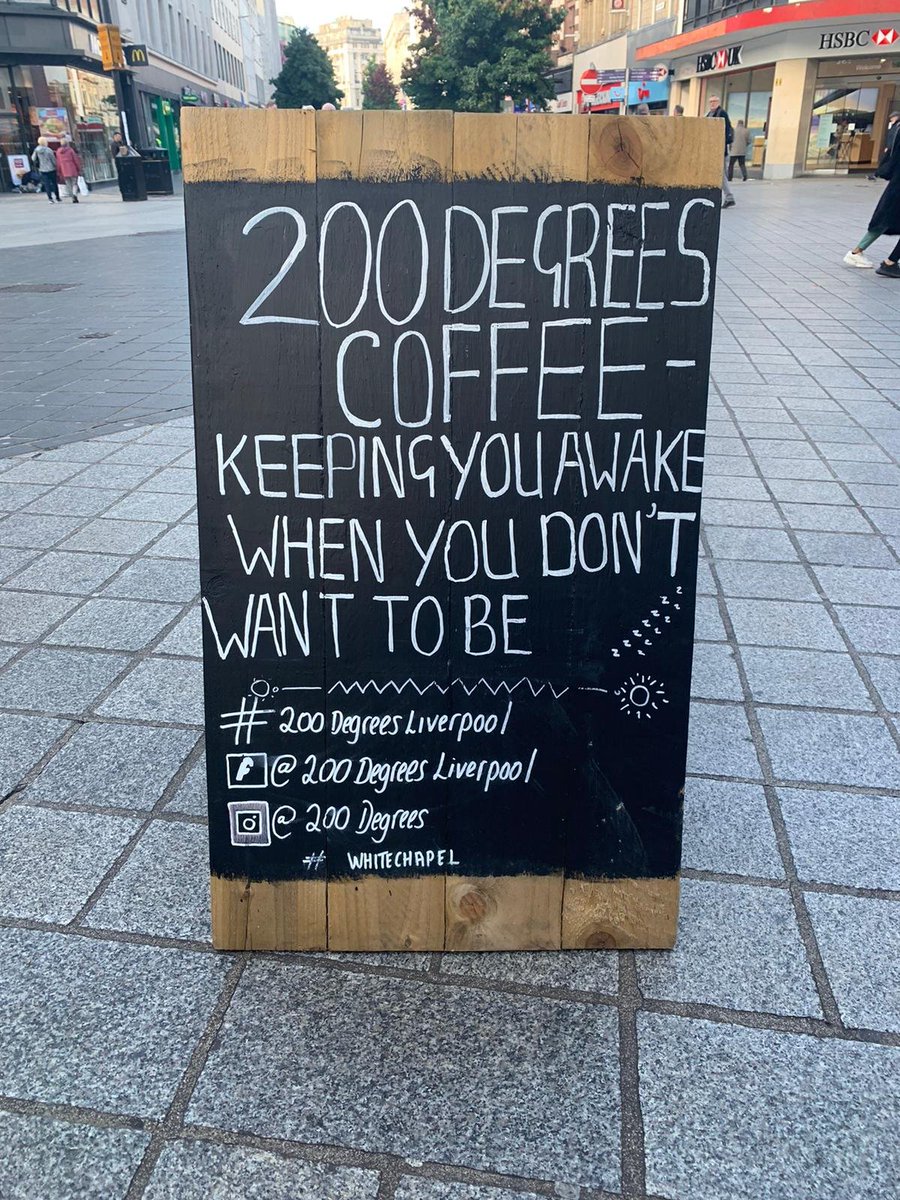 HSBC UK
HSBC
200 DEGREES
COFFEE -
KEEPING YOU AWAKE
WHEN YOU DON'T
WANT TO BE
# 200 Degrees Liverpool
@ 200 Degrees Liverpool
@ 200 Degrees
# WHITECHAPEL